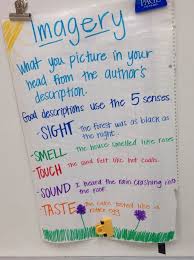 Imagery
What you picture in your
head from the author's
description.
Good descriptions use the 5 senses
-SIGHT the forest was as black as
the night.
-SMELL the house smelled like roses
-TOUCH the sand felt like hot coals.
-SOUND I heard the rain crashing into
the roof.
TASTE the cake tasted like a
rotten egg